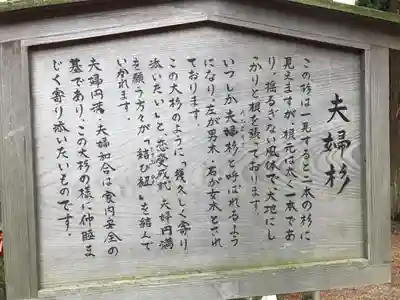 夫婦杉
この杉は一見すると二本の杉に
見えますが、根元は太く一本であ
り、揺るぎない風体で大地にし
っかりと根を張っております。
いつしか夫婦杉と呼ばれるよう
になり、左が男木・右が女木とされ
ております。
この大杉のように「幾久しく寄り
添いたい」と、恋愛成就、夫婦円満
を願う方々が「結び紐」を結んで
いかれます。
夫婦円満・夫婦和合は家内安全の
基であり、この大杉の様に仲睦ま
じく寄り添いたいものです。